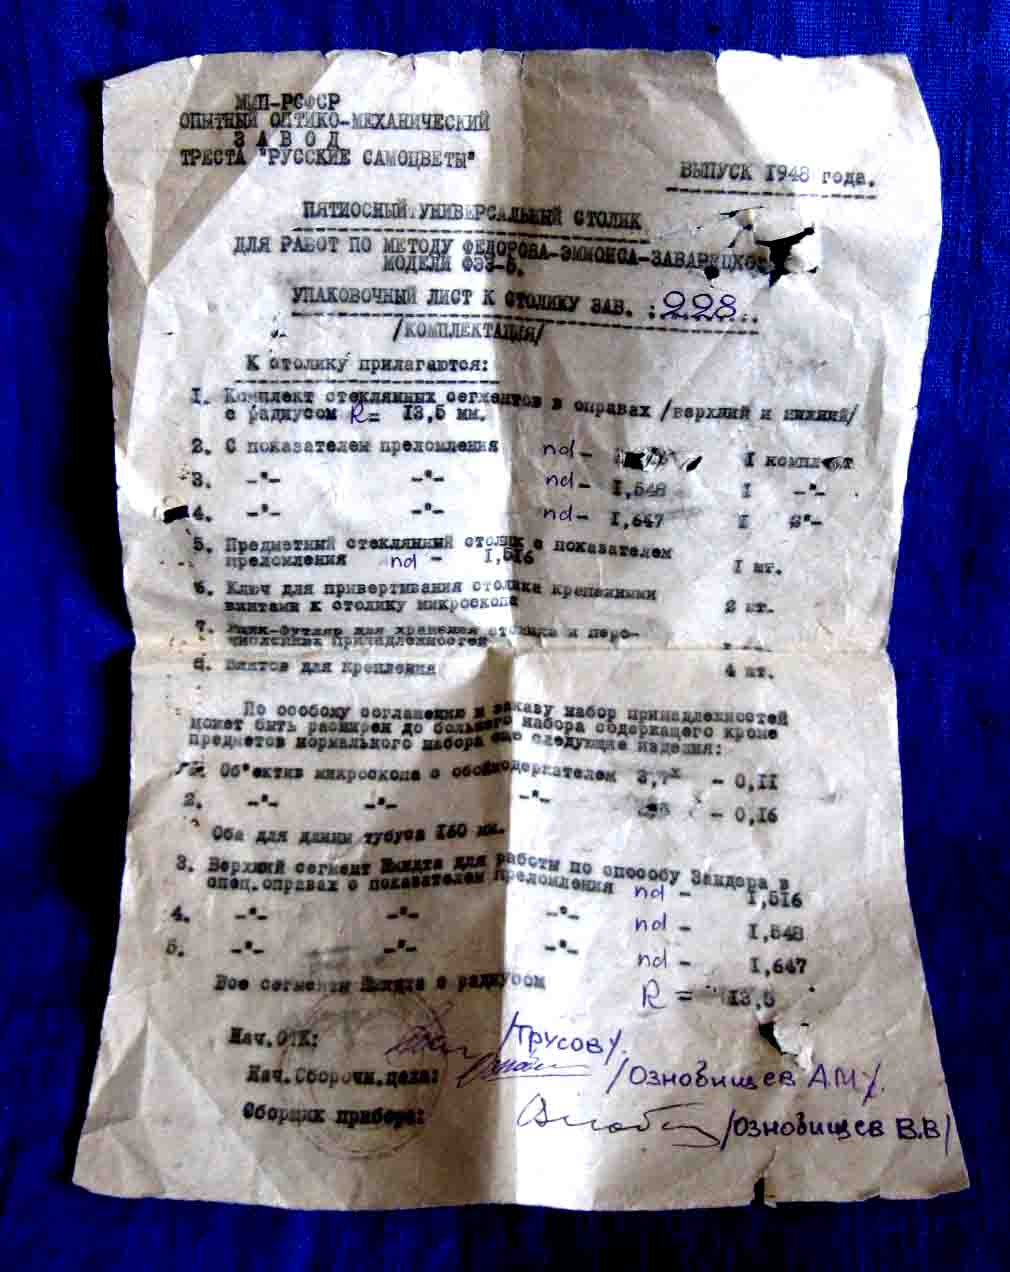 МИП-РСФСР
ОПЫТНЫЙ ОПТИКО-МЕХАНИЧЕСКИЙ
ЗАВОД
ТРЕСТА "РУССКИЕ САМОЦВЕТЫ"
ВЫПУСК 1948 года.
ПЯТИОСНЫЙ УНИВЕРСАЛЬНЫЙ СТОЛИК
ДЛЯ РАБОТ ПО МЕТОДУ ФЕДОРОВА-ЭММОНСА-ЗАВАРИЦКО
МОДЕЛИ ФЭЗ-5.
УПАКОВОЧНЫЙ ЛИСТ К СТОЛИКУ ЗАВ. :228
/КОМПЛЕКТАЦИЯ/
К столику прилагаются:
1. Комплект стеклянных сегментов в оправах /верхний и нижний/
с радиусом R= 13,5 мм.
2. С показателем преломления nd - I комплект
3. -"- -"- nd - I,548 I -"-
4. -"- -"- nd - I,647 I "-
5. Предметный стеклянный столик с показателем
преломления nd - I,516 I шт.
6. Ключ для привертывания столика крепежными
винтами к столику микроскопа 2 шт.
7. Ящик-футляр для хранения столика и пере-
численных принадлежностей
8. Винтов для крепления 4 шт.
По особому соглашению и заказу набор принадлежностей
может быть расширен до большого набора содержащего кроме
предметов нормального набора еще следующие изделия:
Об"ектив микроскопа с обоймодержателем 3,7x - 0,II
2. -"- -"- -"- - 0,16
Оба для длины тубуса 160 мм.
3. Верхний сегмент Шмидта для работы по способу Зандера в
спец.оправах с показателем преломления nd - I,516
4. -"- -"- -"- nd - I,548
5. -"- -"- -"- nd - I,647
Все сегменты Шмидта с радиусом R = 13,5
Нач.ОТК: /Трусов/.
Нач.Сборочн.цеха: /Ознобищев А.М/.
Сборщик прибора: /Ознобищев В.В/